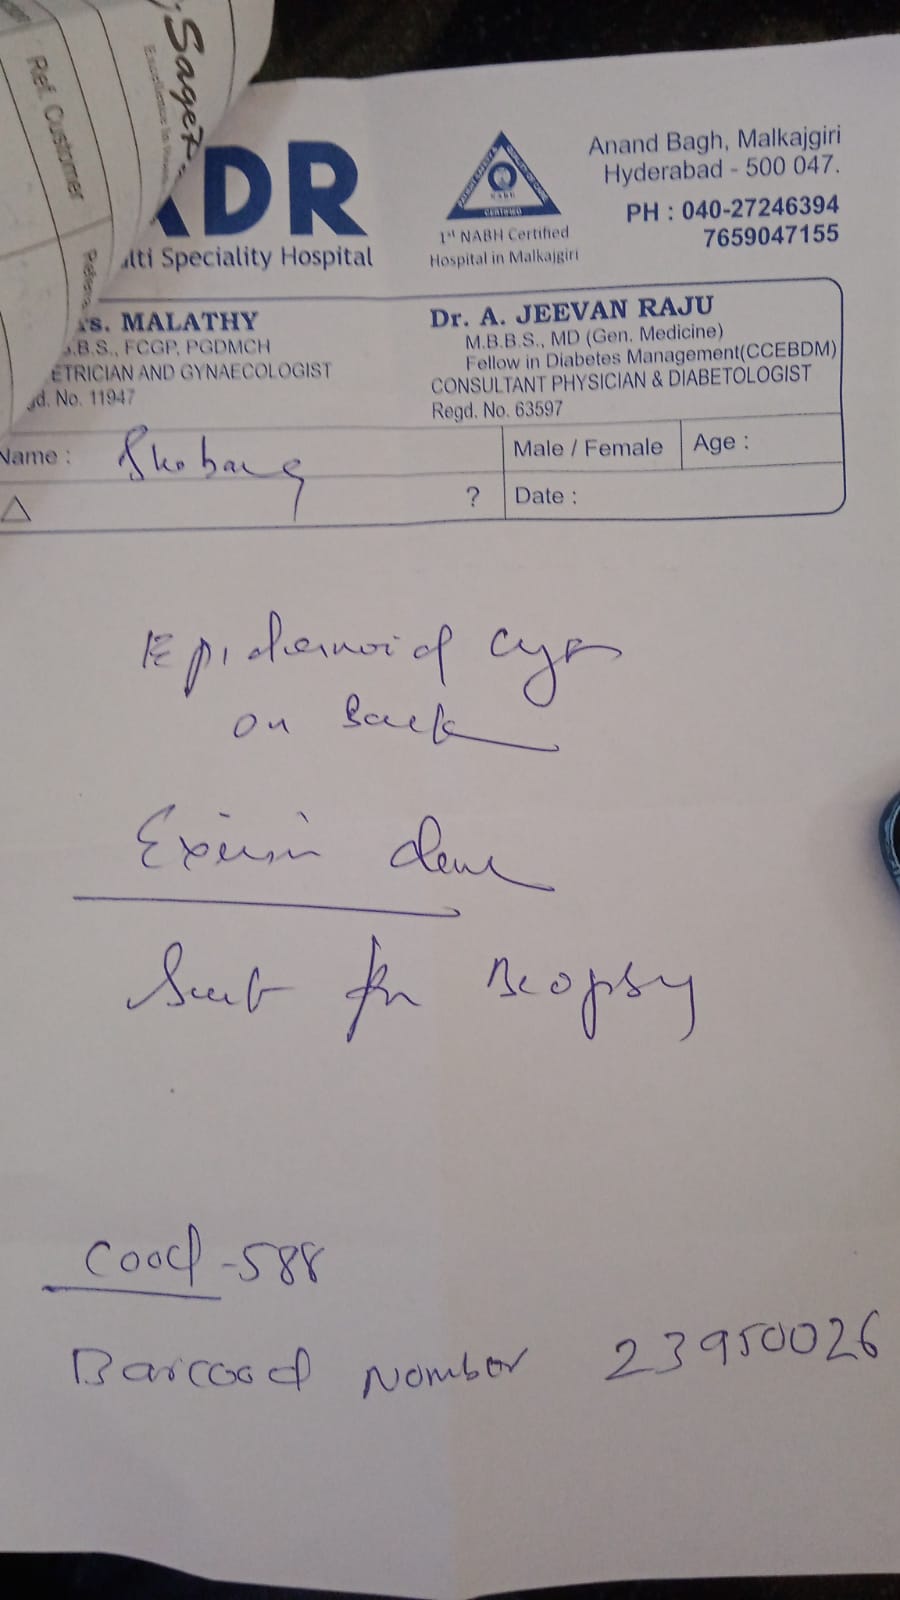 Saget
Ref. Customer
ADR
Anand Bagh, Malkajgiri
Hyderabad - 500 047.
PH : 040-27246394
7659047155
1st NABH Certified
Hospital in Malkajgiri
CERTIFIED
lti Speciality Hospital
rs. MALATHY
.B.S., FCGP, PGDMCH
ETRICIAN AND GYNAECOLOGIST
gd. No. 11947
Dr. A. JEEVAN RAJU
M.B.B.S., MD (Gen. Medicine)
Fellow in Diabetes Management(CCEBDM)
CONSULTANT PHYSICIAN & DIABETOLOGIST
Regd. No. 63597
Name :
Male / Female Age :
△ ? Date :
Epidermoid cyst
on Back
Excision done
Sent for Biopsy
Cood -588
Barcood Nomber 23950026